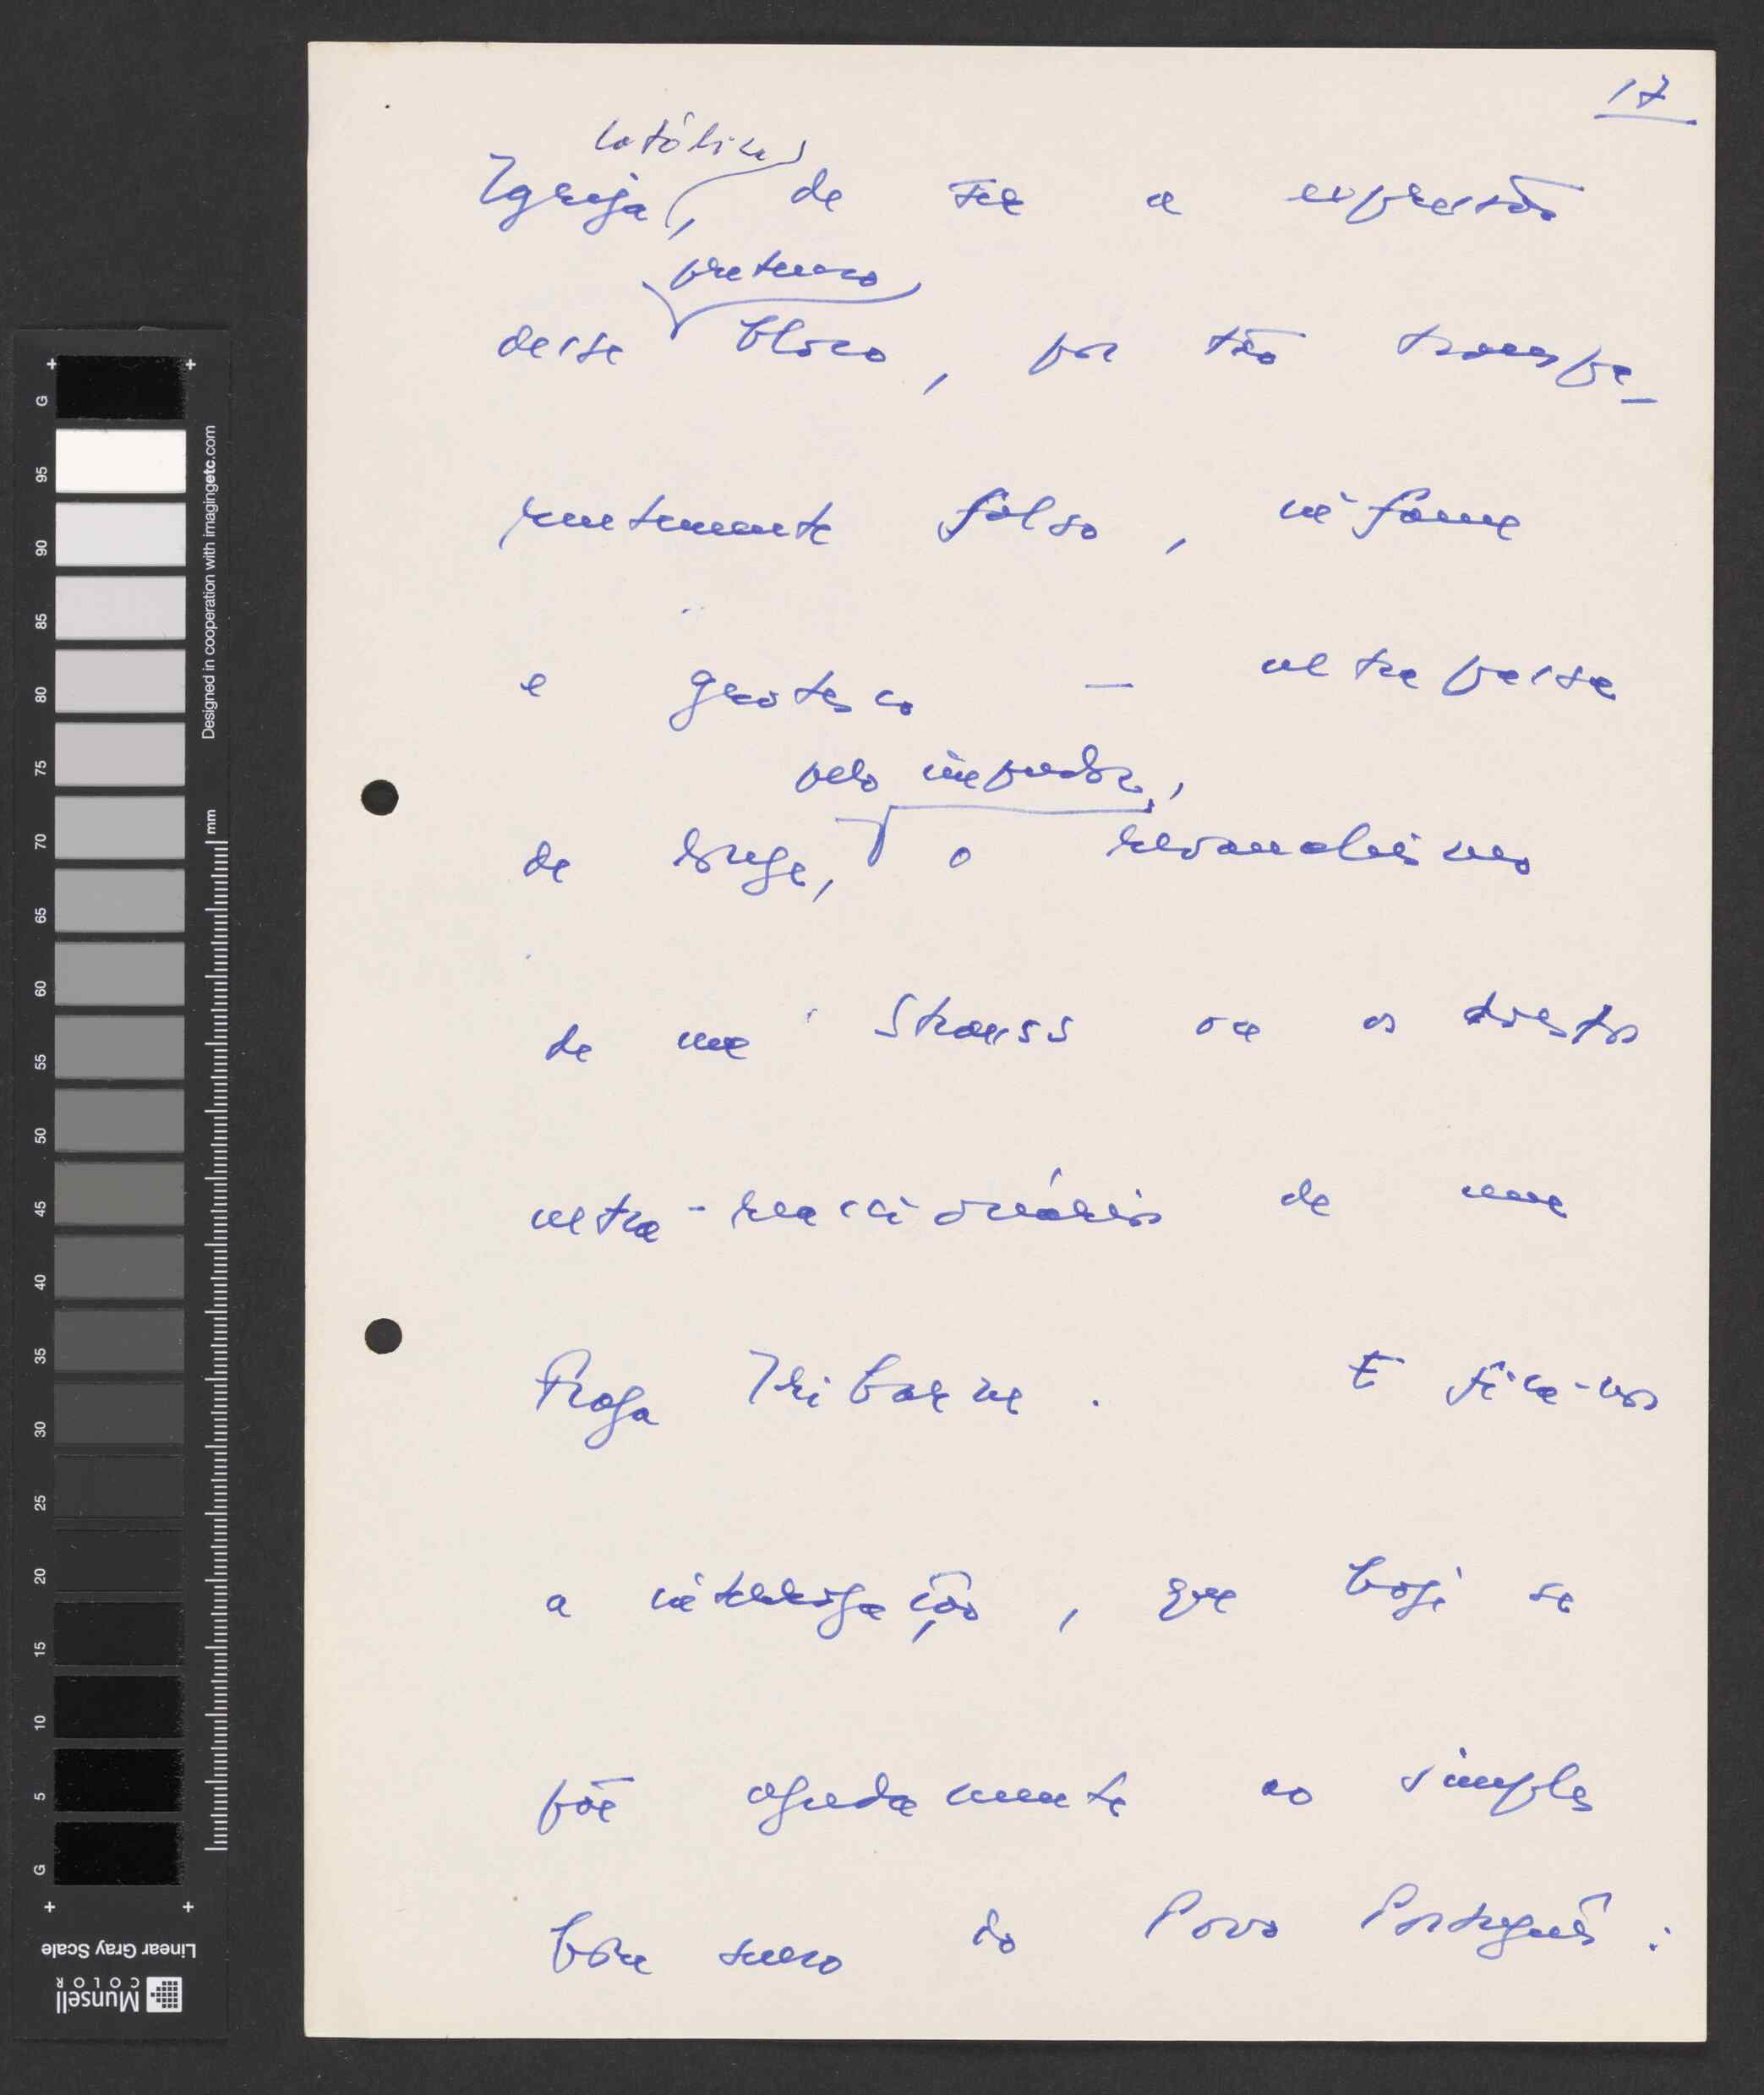 17
Católica,
Igreja, de ser a expressão
pretenso
desse bloco, por tão transpa-
rentemente falso, infame
e grotesco — ultrapassa
pelo impudor,
de longe, o revanchismo
de um Strauss ou os doestos
ultra-reaccionários de um
Fraga Iribarne. E fica-nos
a interrogação, que hoje se
põe agudamente ao simples
bom senso do Povo Português:
G
95
90
85
80
75
70
65
60
55
50
45
40
35
30
25
20
15
10
5
G
Designed in cooperation with imagingetc.com
mm
Linear Gray Scale
Munsell
COLOR